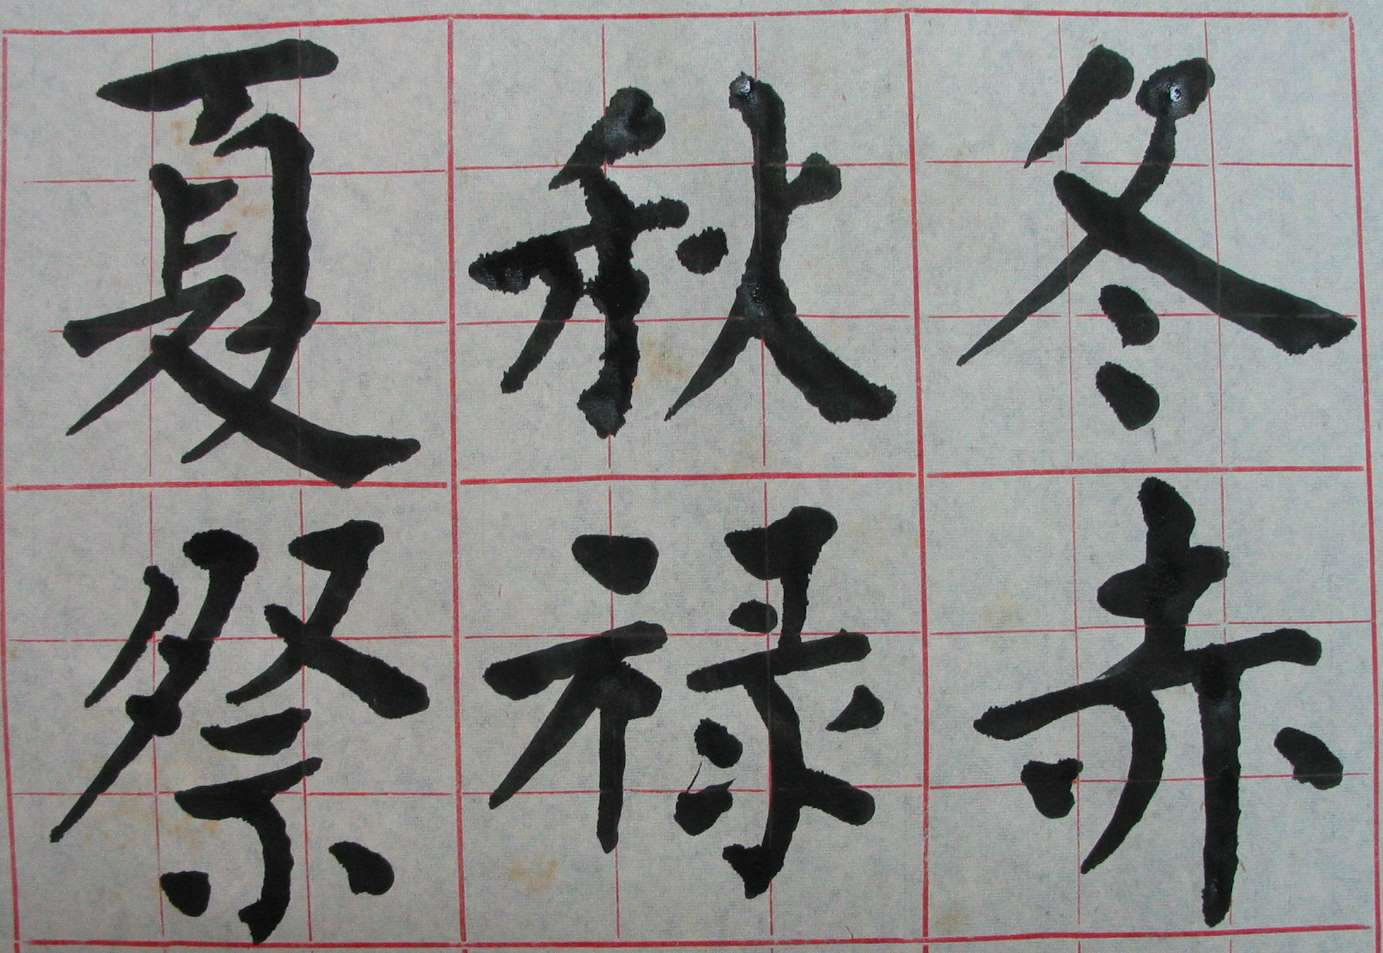 夏秋冬
祭禄赤